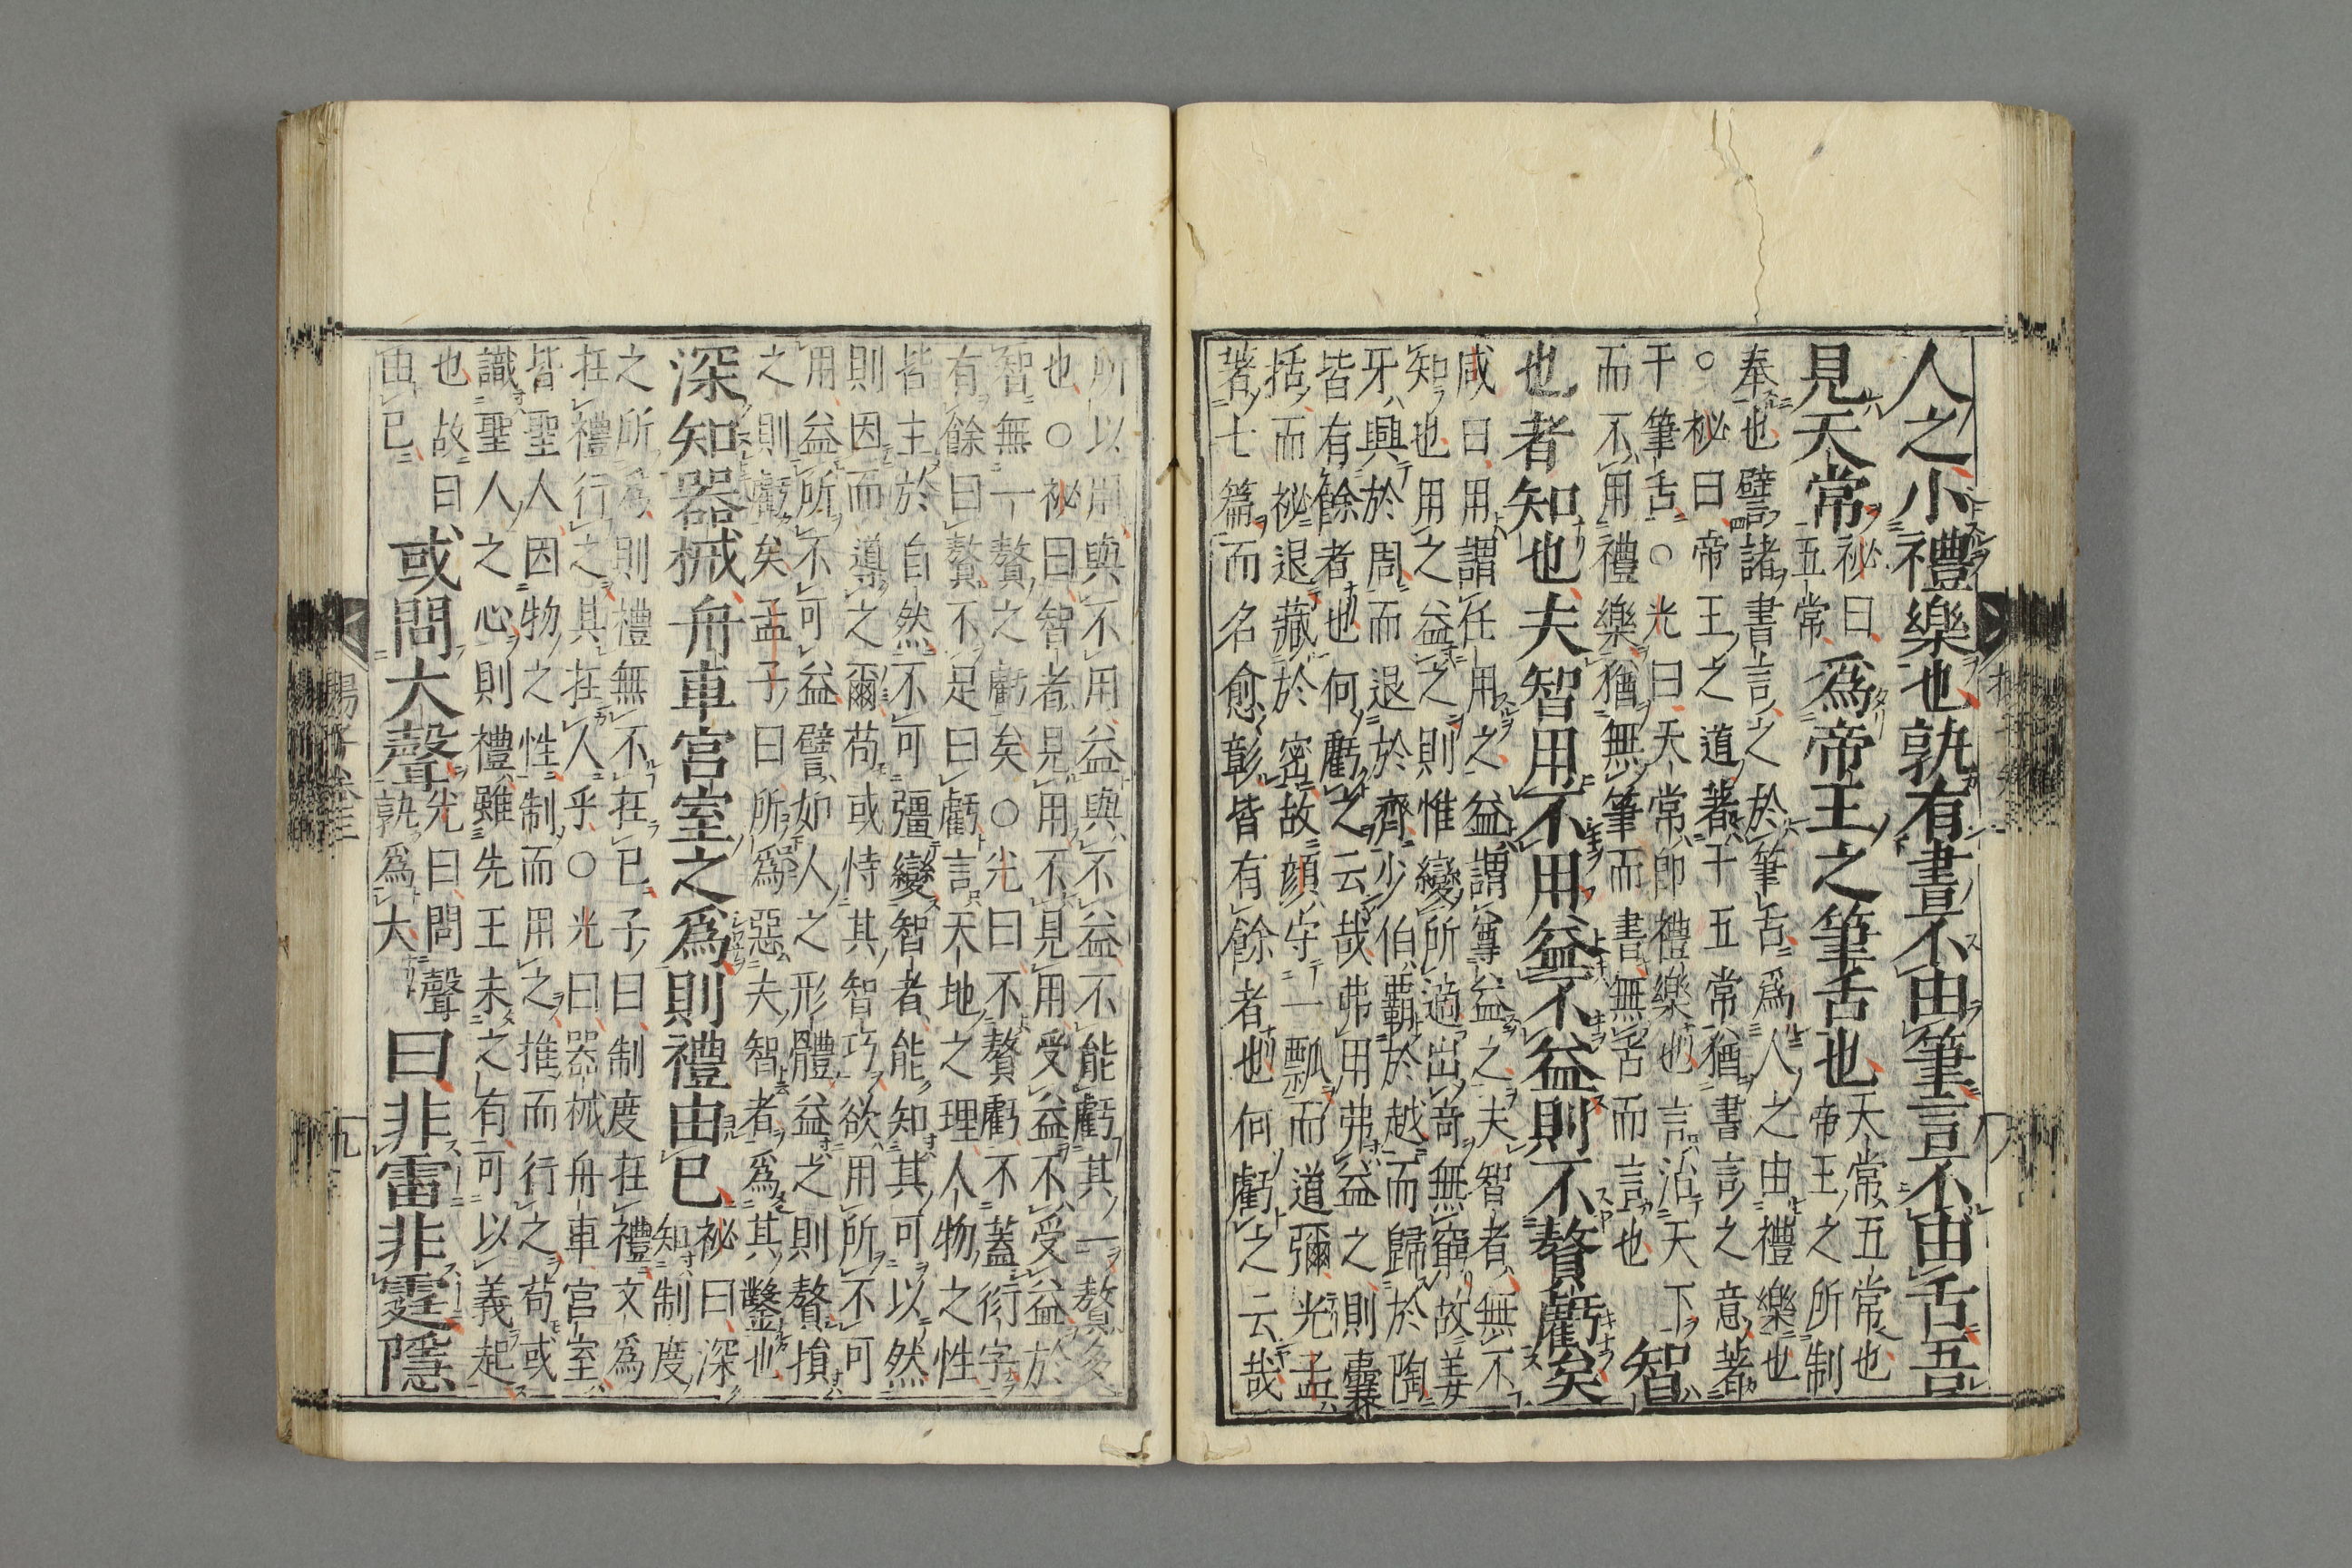 人之小禮樂也孰有書不由筆言不由舌吾
見天常祕曰五常爲帝王之筆舌也天常五常也帝王之所制
奉也譬諸書言之於筆舌爲人之由禮樂也
○祕曰帝王之道著于五常猶書言之意著
于筆舌○光曰天常即禮樂也言治天下
而不用禮樂猶無筆而書無舌而言也智
也者知也夫智用不用益不益則不贅虧矣
咸曰用謂任用之益謂尊益之夫智者無不
知也用之益之則惟變所適出竒無窮故姜
牙興於周而退於齊少伯霸於越而歸於陶
皆有餘者也何虧之云哉弗用弗益之則囊
括而祕退藏於密故顔守一瓢而道彌光孟
著七篇而名愈彰皆有餘者也何虧之云哉
所以用與不用益與不益不能虧其一贅多
也○祕曰智者見用不見用受益不受益於
智無一贅之虧矣○光曰不贅虧不蓋衍字
有餘曰贅不足曰虧言天地之理人物之性
皆主於自然不可彊變智者能知其可以然
則因而導之爾苟或恃其智巧欲用所不可
用益所不可益譬如人之形體益之則贅損
之則虧矣孟子曰所爲惡夫智者爲其鑿也
深知器械舟車宮室之爲則禮由已祕曰深知制度
之所爲則禮無不在已子曰制度在禮文爲
在禮行之其在人乎○光曰器械舟車宮室
皆聖人因物之性制而用之推而行之苟或
識聖人之心則禮雖先王未之有可以義起
也故曰由已或問大聲光曰問聲孰爲大曰非雷非霆隱
揚子卷三
九